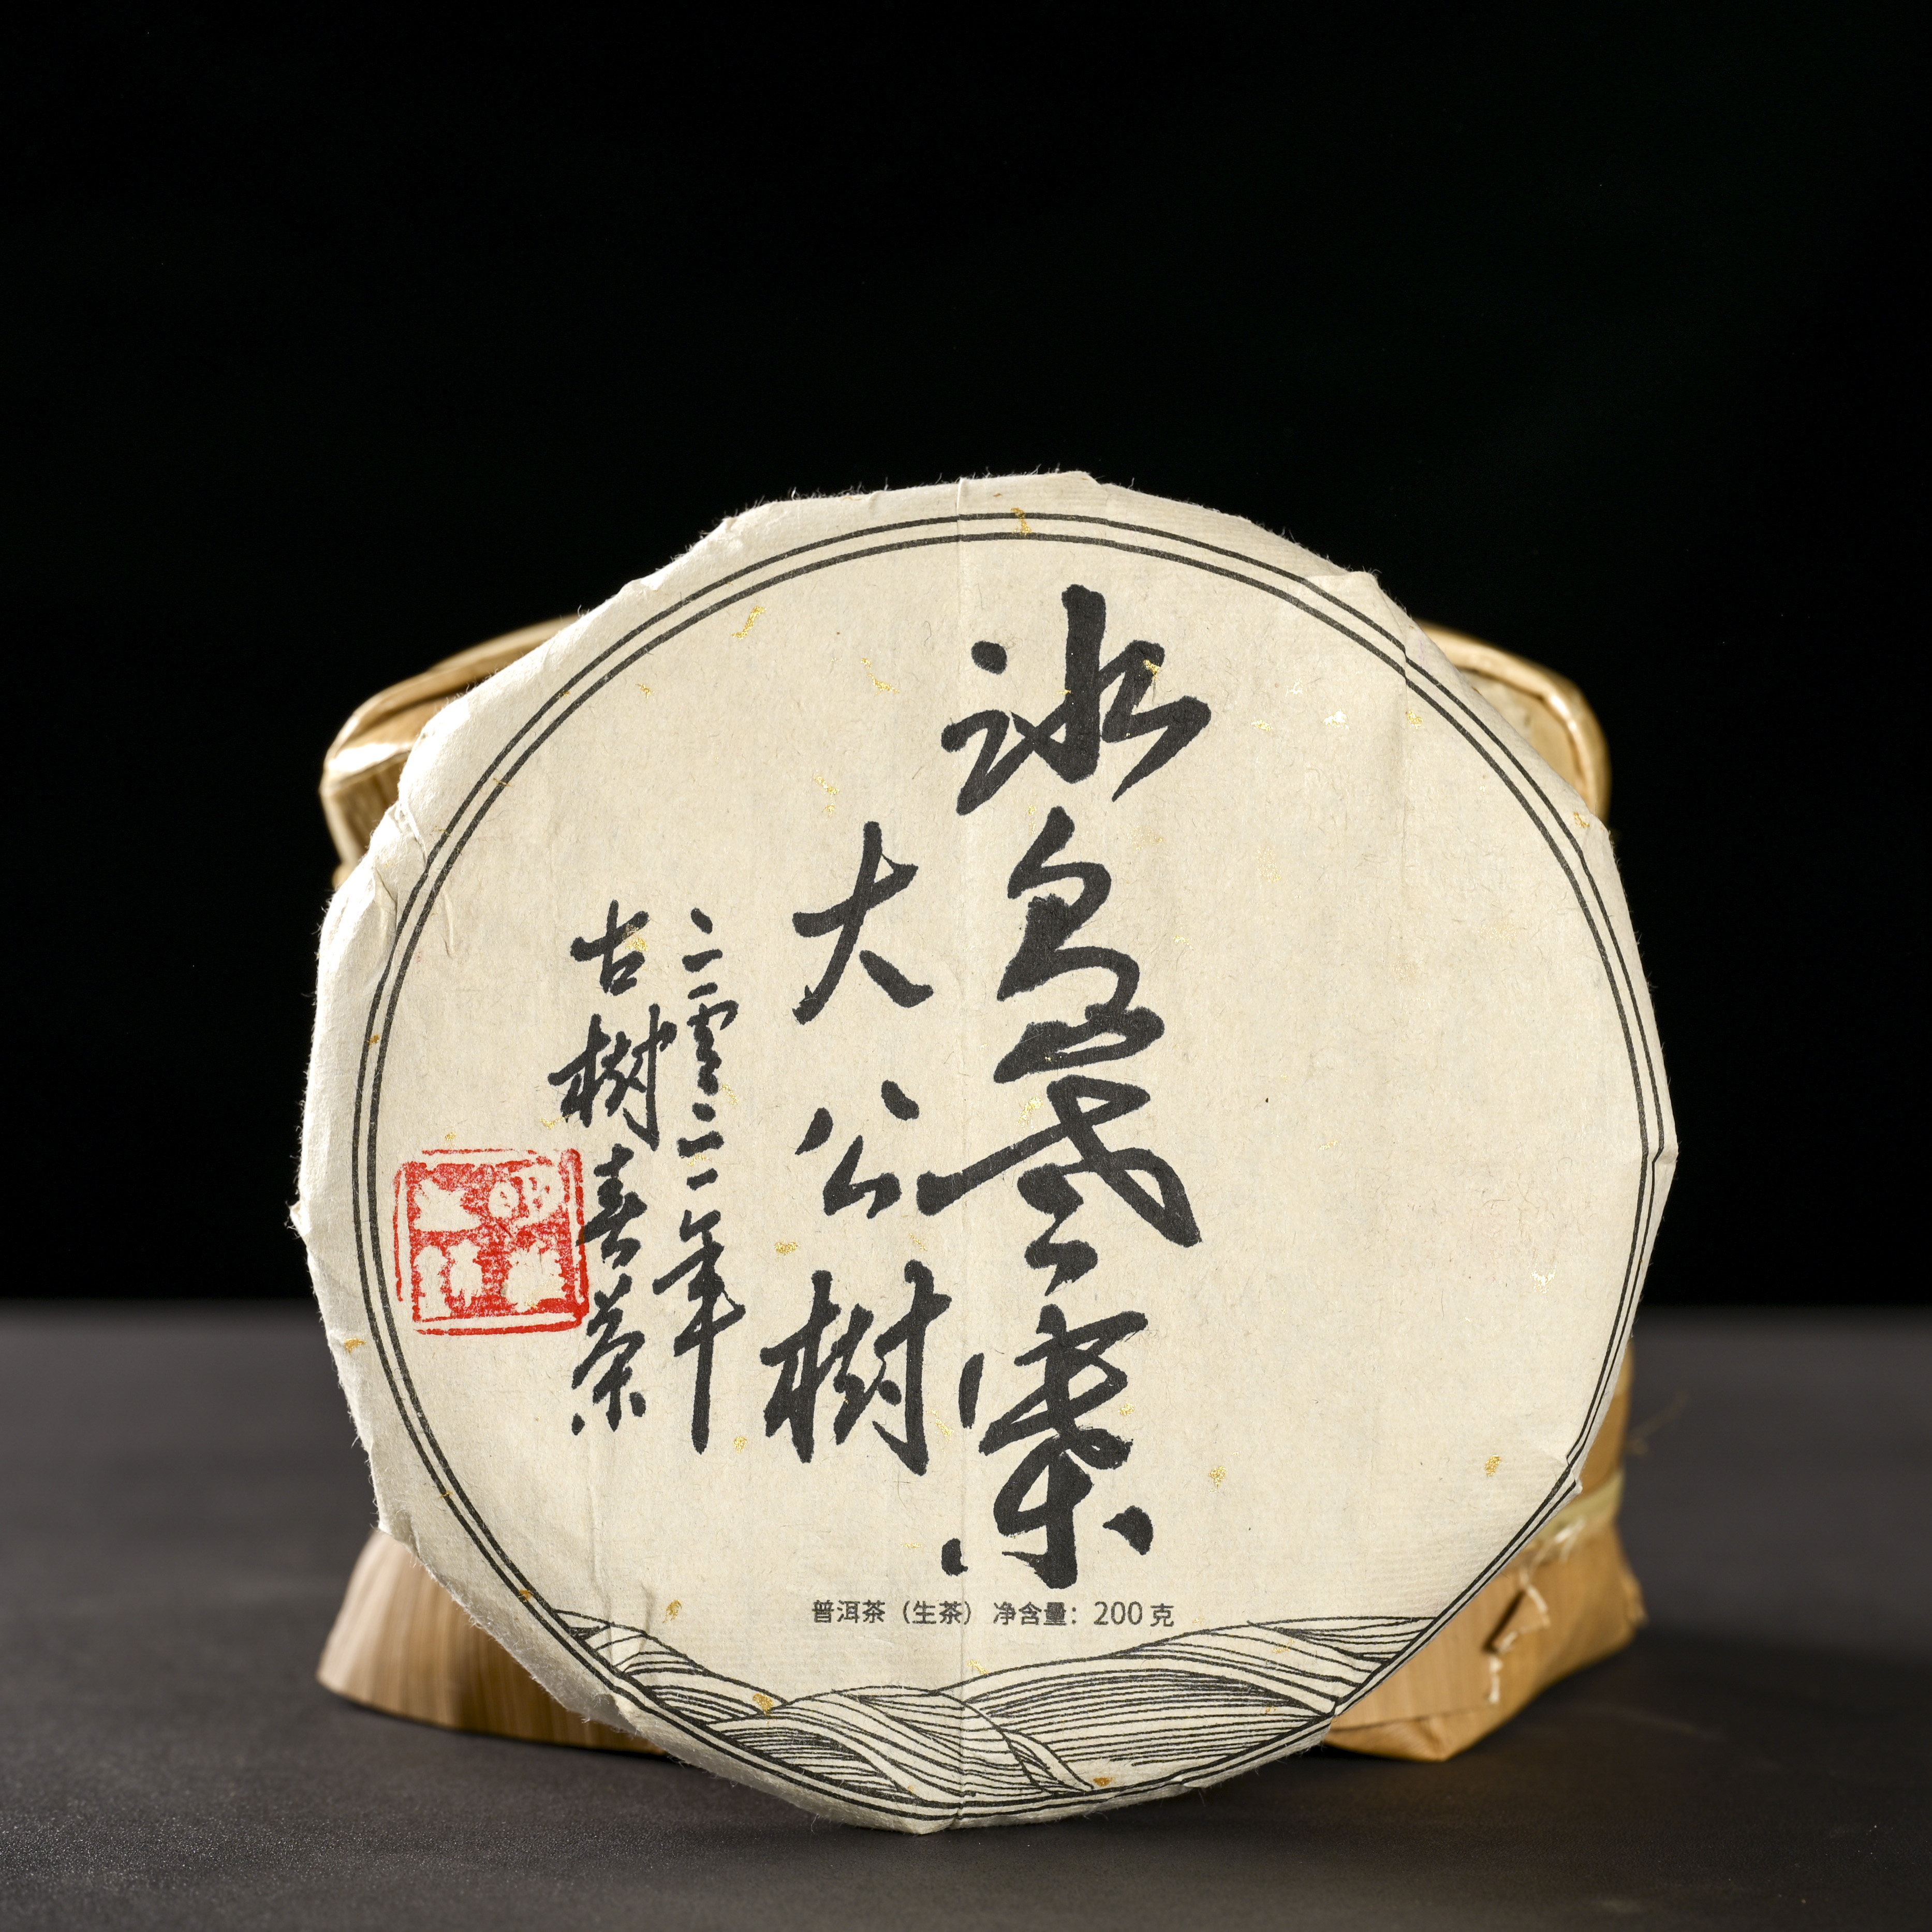 冰島老寨
大公樹
二零二一年
古樹春茶
普洱茶（生茶） 净含量：200克